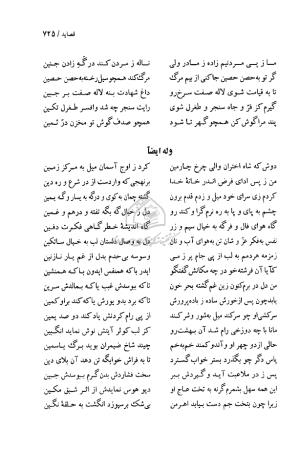 قصاید / ۷۲۵
ما ز پی سردنیم زاده ز مادر ولی
ناله ز مردن کند در گه زادن جنین
گر تو به حصن حصین جاکنی از بیم مرگ
مرگ کند همچو سیل رخنه به حصن حصین
تا به قیامت شوی لاله صفت سرخ‌رو
داغ شهادت بنه لاله صفت بر جبین
گیرم کز فرّ و جاه سنجر و طغرل شوی
رایت سنجر چه شد وافسر طغرل تکین
پند مرا گوش کن همچو گهر تا شود
همچو صدف گوش تو مخزن درّ ثمین
وله ایضاً
دوش که شاه اختران والی چرخ چارمین
کرد ز اوج آسمان میل به مرکز زمین
من ز پس ادای فرض اندر خانهٔ خدا
برنهجی که واردست از در شرع و ره دین
کردم زی سرای خود میل و زدم قدم برون
گشته چمان به کوی و در گه به یسار و گه یمین
چشم به پای و پا به ره نرم گرا و کند رو
دل ز خیال گه بگه تفته و درهم و غمین
گاه هوای فال و فر گه به خیال سیم و زر
گاه اندیشهٔ خطر گاهی فکرت دفین
نفس به فکر عزّ و شان تن به هوای آب و نان
دل به وصال داستان لب به خیال ساتکین
زمزمه هر دمم به لب از پی جام پر ز می
وسوسه بی‌حدم بدل از غم یار نازنین
کایا آن فرشته‌خو در چه مکانش گفتگو
ایدر با که همنفس ایدون با که همنشین
من دل در برم کنون زین غم گشته بحر خون
تاکه بیوسدش غبب یا که بمالدش سرین
یا بدچون پس از خورش ساده و باده پرورش
تاکه برد بدو یورش یا که کند براو کمین
سرکشی او چو سرکند میل به شور و شر کند
از پی رام کردنش یاد کند دو صد یمین
مانا با چه دوزخی رام شد آن بهشت‌رو
کز لب کوثر آیتش نوش نماید انگبین
حالی از دو چهر او آدم و کند همنخیم‌به‌خم
چیند شاخ ضیمران بوید برگ یاسمین
پاس دگر چو بگذرد بستر خواب گسترد
تا به فراش خوابگه تن دهد آن بلای دین
پس ز ملاعبت بدو گیردش تنگ در بغل
سخت فشاردش بدن گرم ببوسدش جبین
این همه سهل بشمرم گر نه به تخت عاج او
دیو هوس نمایدش از اثر شبق مکین
زیرا چون به تخت جم دست بیابد اهرمن
بی‌شک بر سپوزد انگشت به حلقهٔ نگین